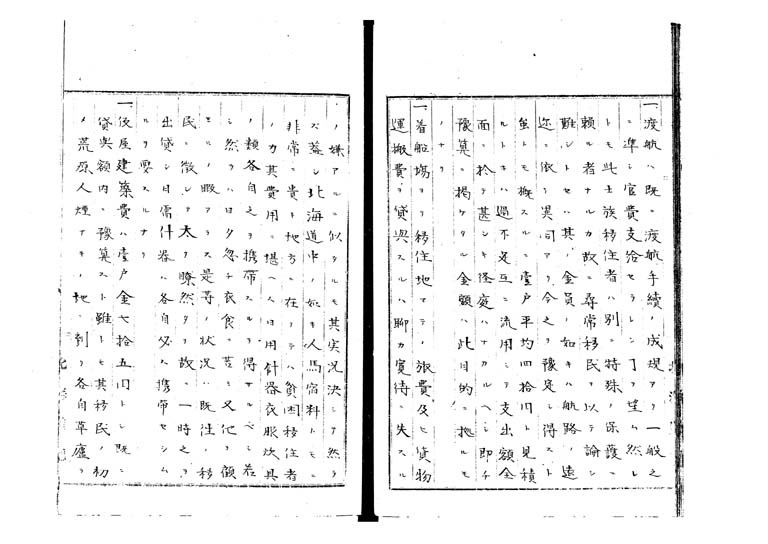 一渡航ハ既ニ渡航手續ノ成規アリ一般之
ニ準シ官費支給セラレンコヲ望ム然レ
トモ此士族移住者ハ別ニ特殊ノ保護ニ
頼ル者ナルカ故ニ尋常移民ヲ以テ論シ
難シトセハ其ノ金員ノ如キハ航路ノ遠
近ニ依リ異同アリ今之ヲ豫定シ得スト
雖トモ概スルニ壹戸平均四拾円ト見積
ルトキハ過不足互ニ流用シテ支出額全
面ニ於テ甚シキ径庭ハナカルヘシ即チ
豫算ニ掲ケタル金額ハ此目的ニ拠ルモ
ノナリ
一着船場ヨリ移住地マテノ旅費及ヒ貨物
運搬費ヲ貸與スルハ聊カ寛待ニ失スル
ノ嫌アルニ似タルモ其実況決シテ然ラ
ス蓋シ北海道中ノ如キ人馬宿料トモニ
非常ニ貴キ地方ニ在リテハ貧困移住者
ノ力其費用ニ堪ヘス日用什器衣服炊具
ノ類各自之ヲ携帯スルヲ得サルヘシ若
シ然ラハ日夕忽チ衣食ニ苦ミ又他ヲ顧
ミルノ暇アラス是等ノ状況ハ既往ノ移
民ニ徴シテ太タ瞭然タリ故ニ一時之ヲ
出貸シ日需什器ハ各自必ス携帯セシム
ルヲ要スルナリ
一仮屋建築費ハ壹戸金七拾五円トシ既ニ
貸與額内ニ豫算スト雖トモ其移民ノ初
メ荒原人煙ナキノ地ニ到リ各自草廬ヲ